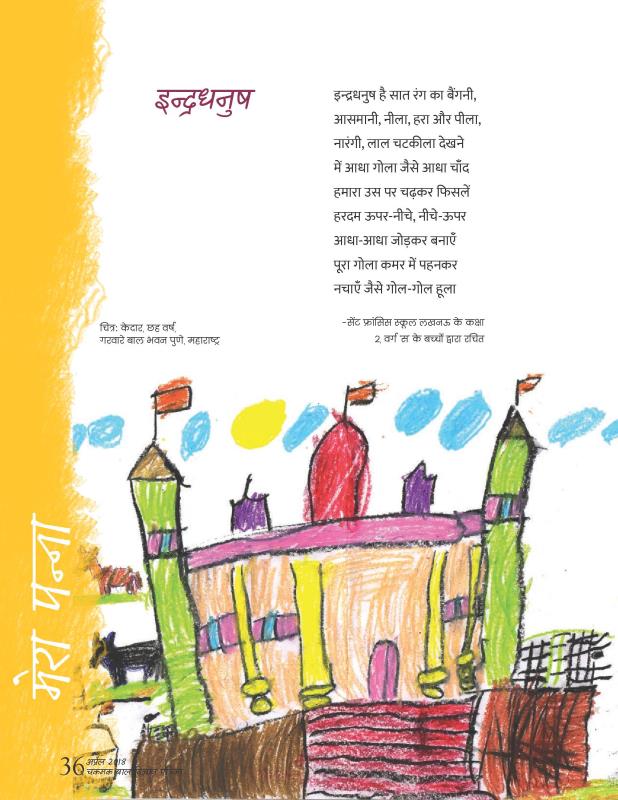 इन्द्रधनुष
इन्द्रधनुष है सात रंग का बैंगनी,
आसमानी, नीला, हरा और पीला,
नारंगी, लाल चटकीला देखने
में आधा गोला जैसे आधा चाँद
हमारा उस पर चढ़कर फिसलें
हरदम ऊपर-नीचे, नीचे-ऊपर
आधा-आधा जोड़कर बनाएँ
पूरा गोला कमर में पहनकर
नचाएँ जैसे गोल-गोल हूला
-सेंट फ्रांसिस स्कूल लखनऊ के कक्षा
2, वर्ग 'स' के बच्चों द्वारा रचित
चित्र: केदार, छह वर्ष,
गरवारे बाल भवन पुणे, महाराष्ट्र
मेरा पन्ना
36
अप्रैल 2018
चकमक बाल विज्ञान पत्रिका